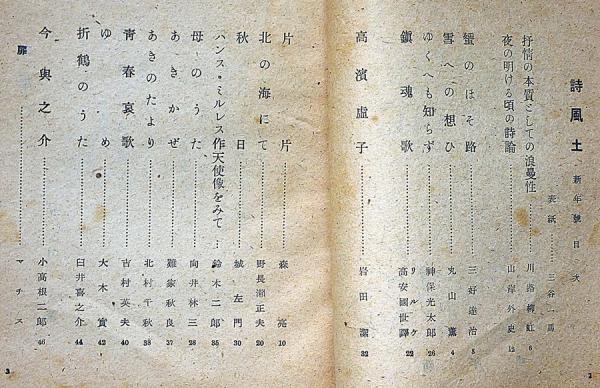 詩風土 新年號目次
表紙……三谷一馬
抒情の本質としての浪曼性……川路柳虹 6
夜の明ける頃の詩論……山岸外史 12
蟹のほそ路……三好達治 8
雪への想ひ……丸山薫 4
ゆくへも知らず……神保光太郎 26
鎭魂歌……リルケ 高安國世譯 22
高濱虚子……岩田潔 32
片片……森亮 10
北の海にて……野長瀬正夫 20
秋日……城左門 30
ハンス・ミルレス作天使像をみて……鈴木二郎 35
母のうた……向井林三 28
あきかぜ……難家秋良 37
あきのたより……北村千秋 38
靑春哀歌……吉村英夫 40
ゆめ……大木實 42
折鶴のうた……臼井喜之介 44
今與之介……小高根二郎 46
扉……マチス
3
2